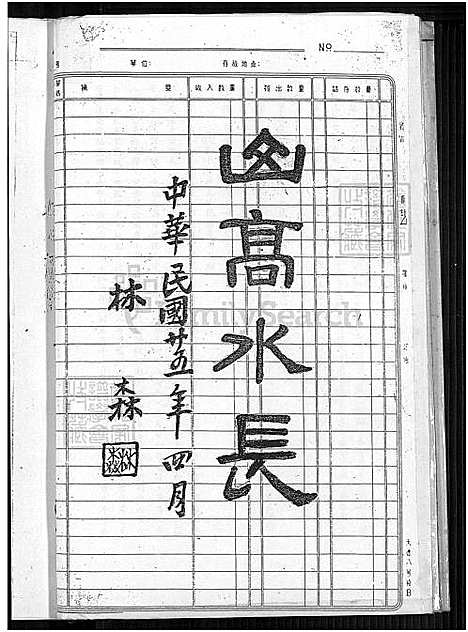 No
單位:
存放地点:
收入數量
付出數量
結存數量
山高水長
中華民國廿五年四月
林森
FamilySearch